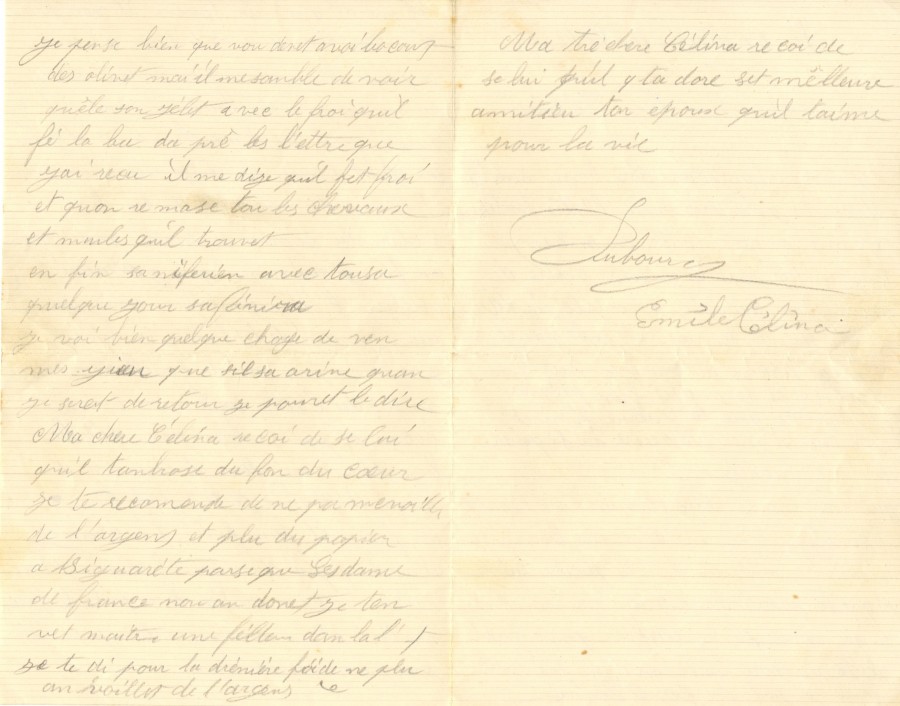 je pense bien que vou devet avoi bocout
des olivet mai il me samble de voir
quêle son gélet avec le froi qu'il
fé la ba da prê les l'ettre que
j'ai recu il me dise qu'il fet froi
et quon re mase tou les chevaux
et moules qu'il trouvet
en fin sa niferien avec tousa
quelque jour sa finira
je voi bien quelque chage de ven
mes que sil sa arive quan
je seret de retour je pouret le dire
Ma chere Célina recoi de se lui
qu'il tanbrase du fon du cœur
je te recomende de ne pa menvoill
de l'argens et plu du papier
a Siguaréte parse que Les dame
de france nou an donet je ten
vet maitre une filleu dan la l
je te di pour la dérnière foi de ne plu
anvoillet de l'argens
Ma tré chere Célina recoi de
se lui qu'il ta dore set mêlleure
amitieu ton époux qu'il taime
pour la vie
Emile Célina